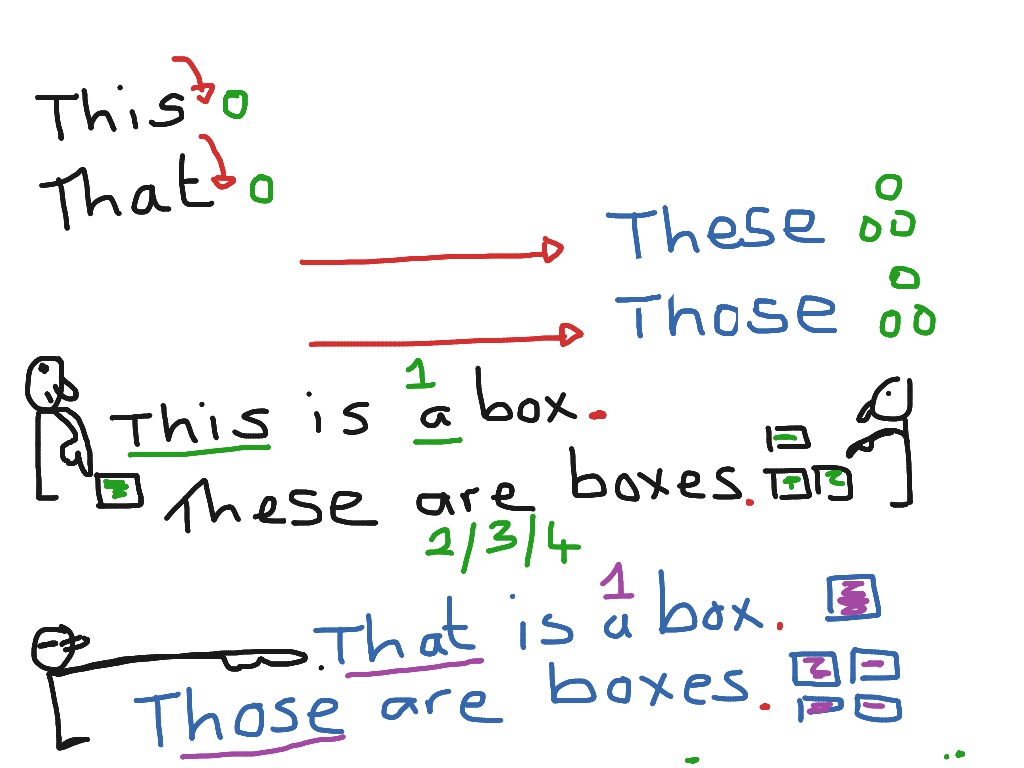 This
That
These
Those
1
This is a box.
These are boxes.
2/3/4
1
That is a box.
Those are boxes.